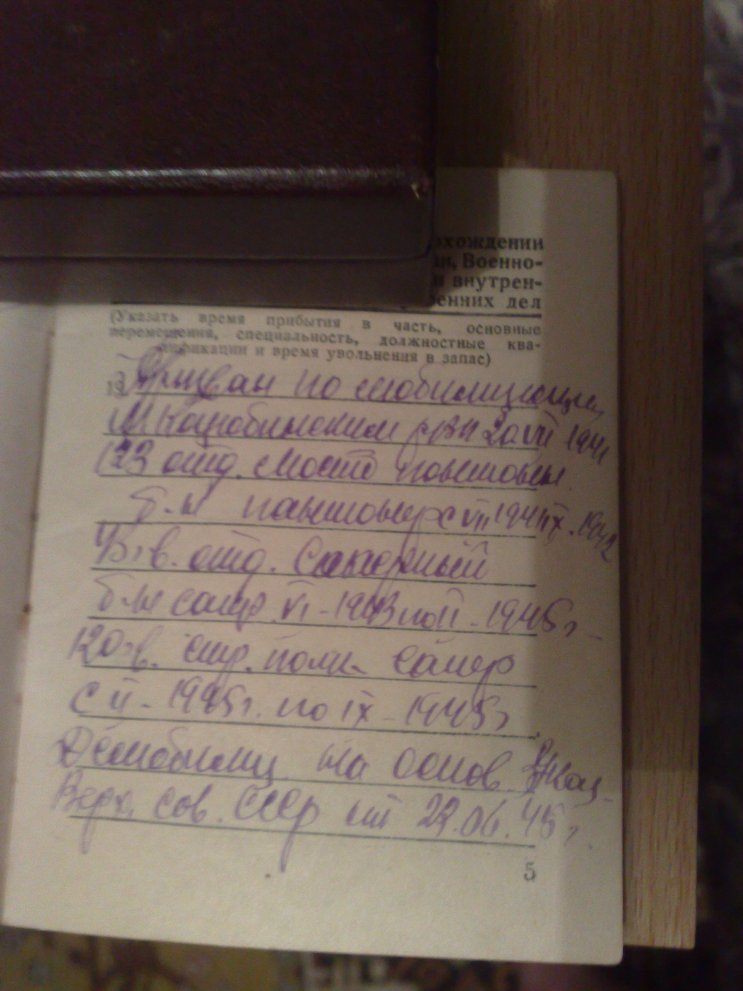 хождении
Военно-
внутрен-
енних дел
(Указать время прибытия в часть, основные
перемещения, специальность, должностные ква-
лификации и время увольнения в запас)
Призван по мобилизации
рвк VII 1941
123 отд. мосто понтонн.
б-н понтонер с VII 1941 IX. 1942
в. отд. Саперный
б-н сапер. VI - 1943 по II - 1945 г.
120 гв. стр. полк Сапер
с II - 1945 г. по IX - 1945 г.
Демобилиз на основ. Указ.
Верх. сов. СССР от 23.06.45 г.
5